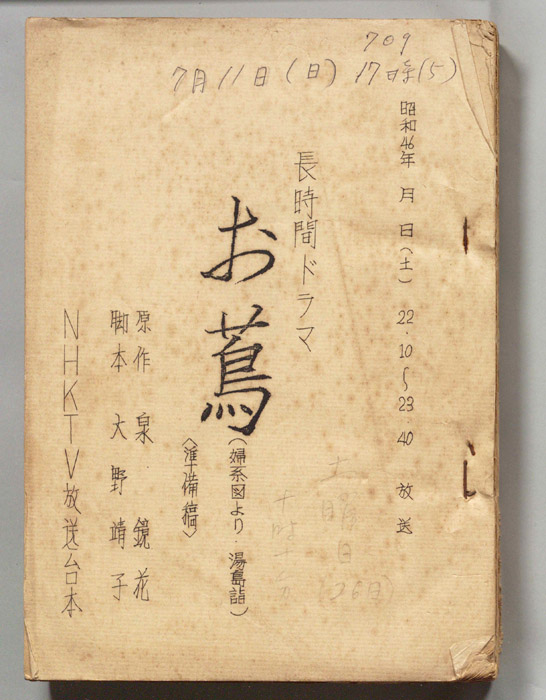 709
7月11日(日) 17時(5)
昭和46年 月 日(土) 22.10〜23.40 放送
長時間ドラマ
お蔦
(婦系図より・湯島詣)
〈準備稿〉
原作 泉 鏡花
脚本 大野靖子
NHKTV放送台本
土曜日
(26日)